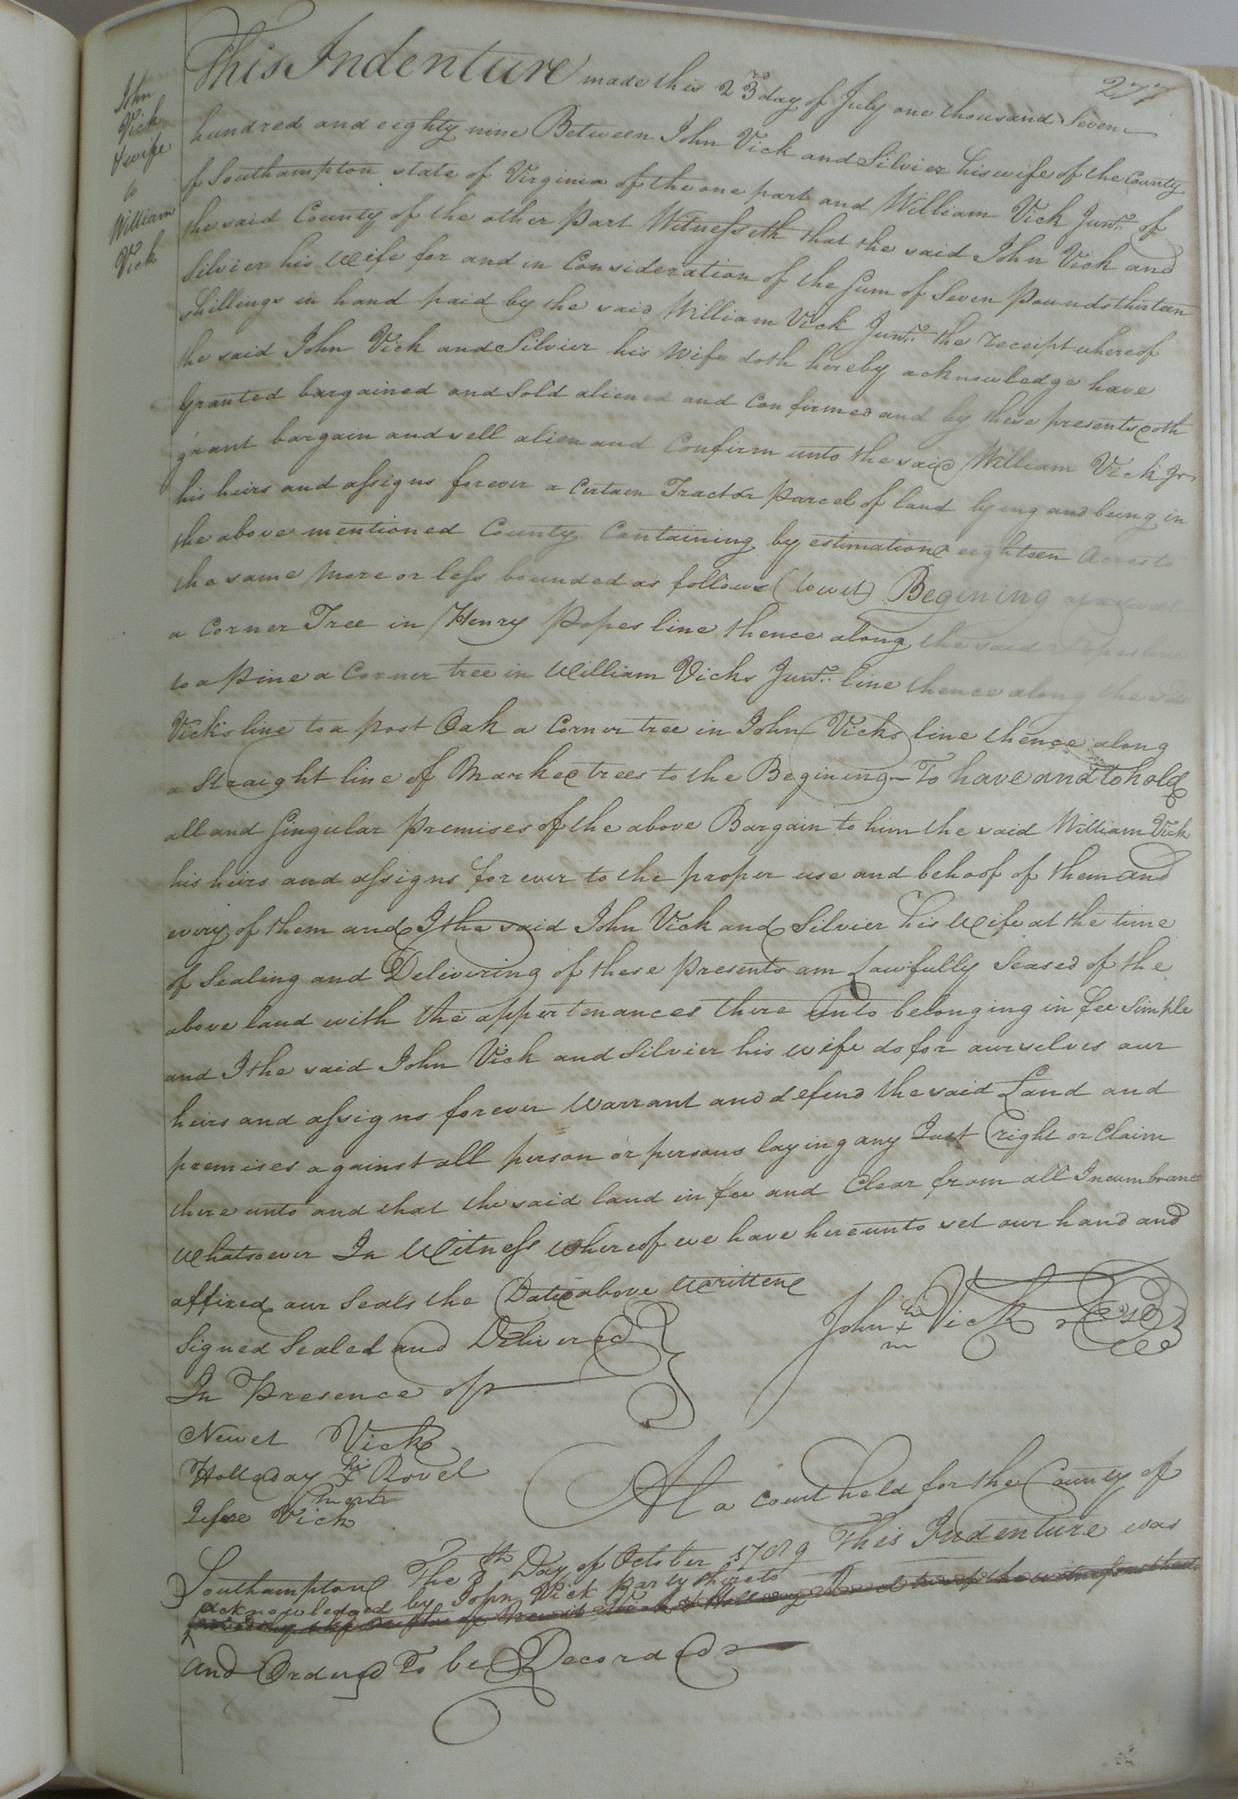 277
John
Vick
& wife
to
William
Vick
This Indenture made this 23rd day of July one thousand Seven
hundred and eighty nine Between John Vick and Silvier his wife of the County
of Southampton state of Virginia of the one part and William Vick Junr. of
the said County of the other Part Witnesseth that the said John Vick and
Silvier his Wife for and in Consideration of the Sum of Seven Pounds thirteen
Shillings in hand paid by the said William Vick Junr. the receipt whereof
he said John Vick and Silvier his Wife doth hereby acknowledge have
Granted bargained and Sold aliened and Confirmed and by these presents doth
grant bargain and sell alien and Confirm unto the said William Vick Jr
his heirs and assigns forever a Certain Tract or Parcel of land lying and being in
the above mentioned County Containing by estimatione eighteen Acres to
the same More or less bounded as follows (to wit) Begining
a Corner Tree in Henry Popes line thence along the said Popes line
to a Pine a Corner tree in William Vicks Junr. line thence along the said
Vicks line to a post Oak a Corner tree in John Vicks line thence along
a Straight line of Marked trees to the Begining To have and to hold
all and Singular Premises of the above Bargain to him the said William Vick
his heirs and assigns for ever to the proper use and behoof of them and
every of them and I the said John Vick and Silvier his Wife at the time
of Sealing and Delivering of these Presents am Lawfully Seased of the
above land with the appertenances there Unto belonging in fee simple
and I the said John Vick and Silvier his wife do for ourselves our
heirs and assigns forever Warrant and defend the said Land and
premises against all person or persons laying any Just right or Claim
there unto and that the said land in fee and Clear from all Incumbrance
Whatsoever In Witness whereof we have hereunto set our hand and
affixed our Seals the Date above Writtene
John his x m Vick Seal
Signed Sealed and Delivered
In Presence of
Newet Vick
Holladay his x mark Rovel
Jesse Vick
At a Court held for the County of
Southampton The 8th Day of October 1789 This Indenture was
acknowledged by John Vick Party thereto
and Ordered To be Recorded